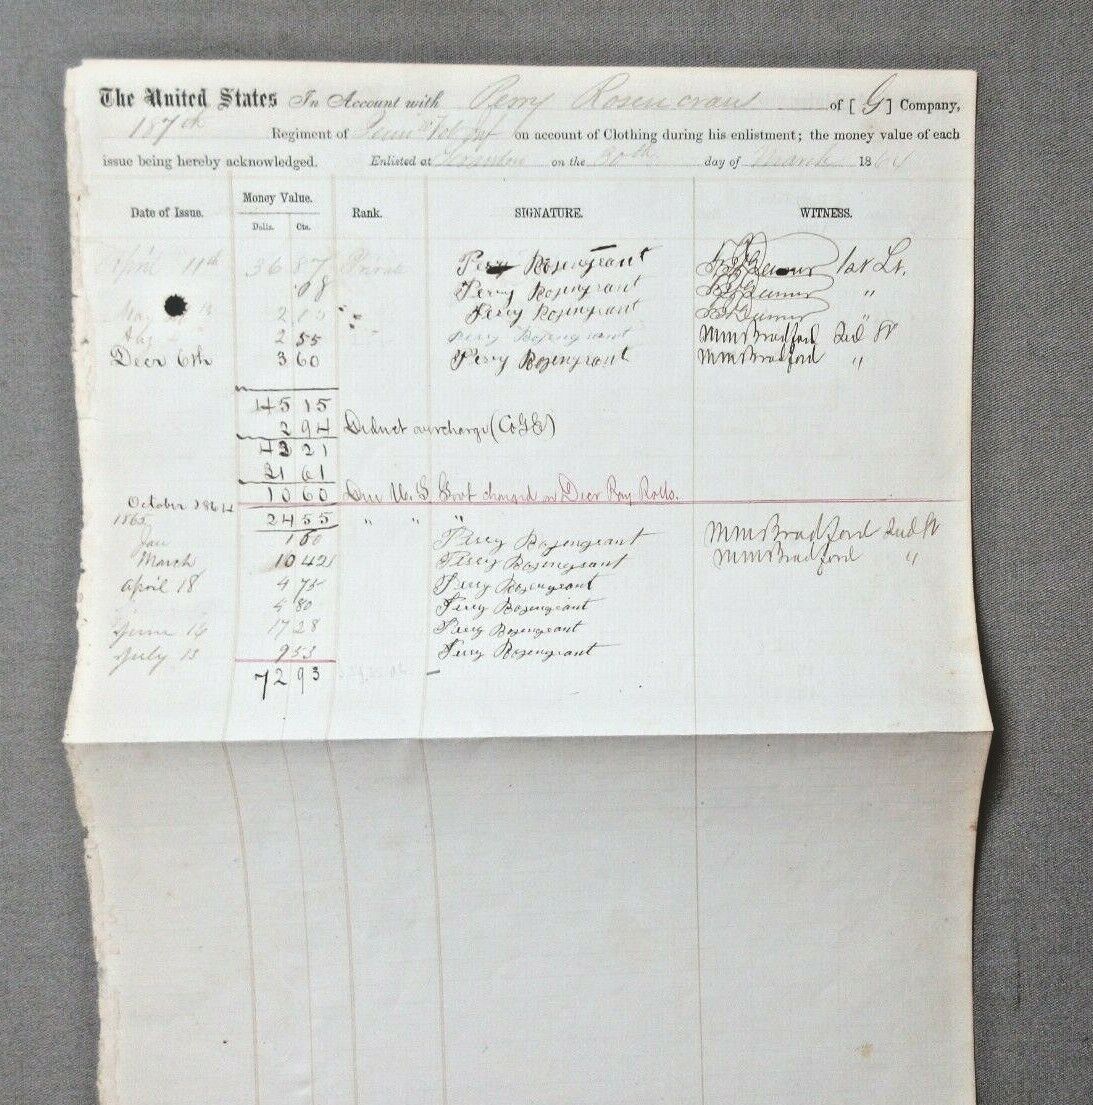 The United States In Account with Perry Rosencrans of [ G ] Company,
187th Regiment of on account of Clothing during his enlistment; the money value of each
issue being hereby acknowledged. Enlisted at on the 30th day of March 1864
Date of Issue. Money Value. Rank. SIGNATURE. WITNESS.
Dolls. Cts.
April 11th 36 87 Private Perry Rosengrant 1st Lt.
08 Perry Rosengrant "
May 2 Perry Rosengrant "
2 55 Perry Rosengrant Wm Bradford 2nd Lt
Decr 6th 3 60 Perry Rosengrant Wm Bradford "
45 15
2 94 Deduct overcharge (Co G)
42 21
31 61
10 60 Due U. S Govt charged on Decr Pay Rolls.
October 1864 24 55 " " "
1865
Jan 1 60 Perry Rosengrant Wm Bradford 2nd Lt
March 10 42 Perry Rosengrant Wm Bradford "
April 18 4 75 Perry Rosengrant
4 80 Perry Rosengrant
June 14 17 28 Perry Rosengrant
July 13 9 53 Perry Rosengrant
72 93